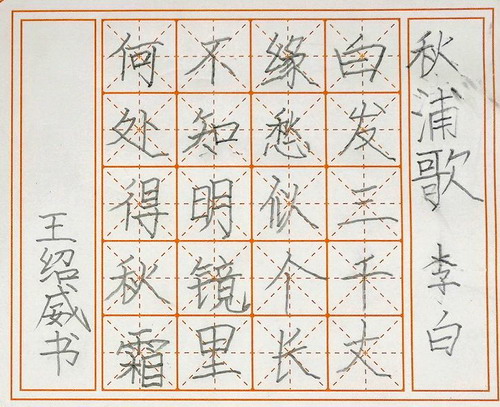 秋浦歌 李白
白发三千丈
缘愁似个长
不知明镜里
何处得秋霜
王绍威书